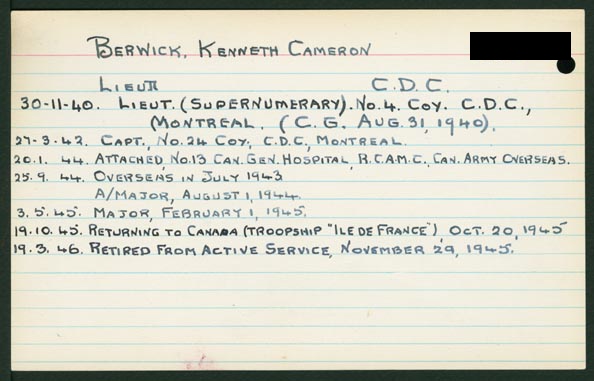 BERWICK, KENNETH CAMERON
LIEUT C.D.C.
30-11-40. LIEUT. (SUPERNUMERARY). NO.4. COY. C.D.C.,
MONTREAL. (C.G. AUG. 31, 1940).
27-3-42. CAPT., NO.24 COY., C.D.C., MONTREAL.
20.1. 44. ATTACHED, NO.13 CAN. GEN. HOSPITAL, R.C.A.M.C., CAN. ARMY OVERSEAS.
25.9. 44. OVERSEAS IN JULY 1943
A/MAJOR, AUGUST 1, 1944.
3.5.45. MAJOR, FEBRUARY 1, 1945.
19.10.45. RETURNING TO CANADA (TROOPSHIP "ILE DE FRANCE"), OCT. 20, 1945
19.3.46. RETIRED FROM ACTIVE SERVICE, NOVEMBER 29, 1945.